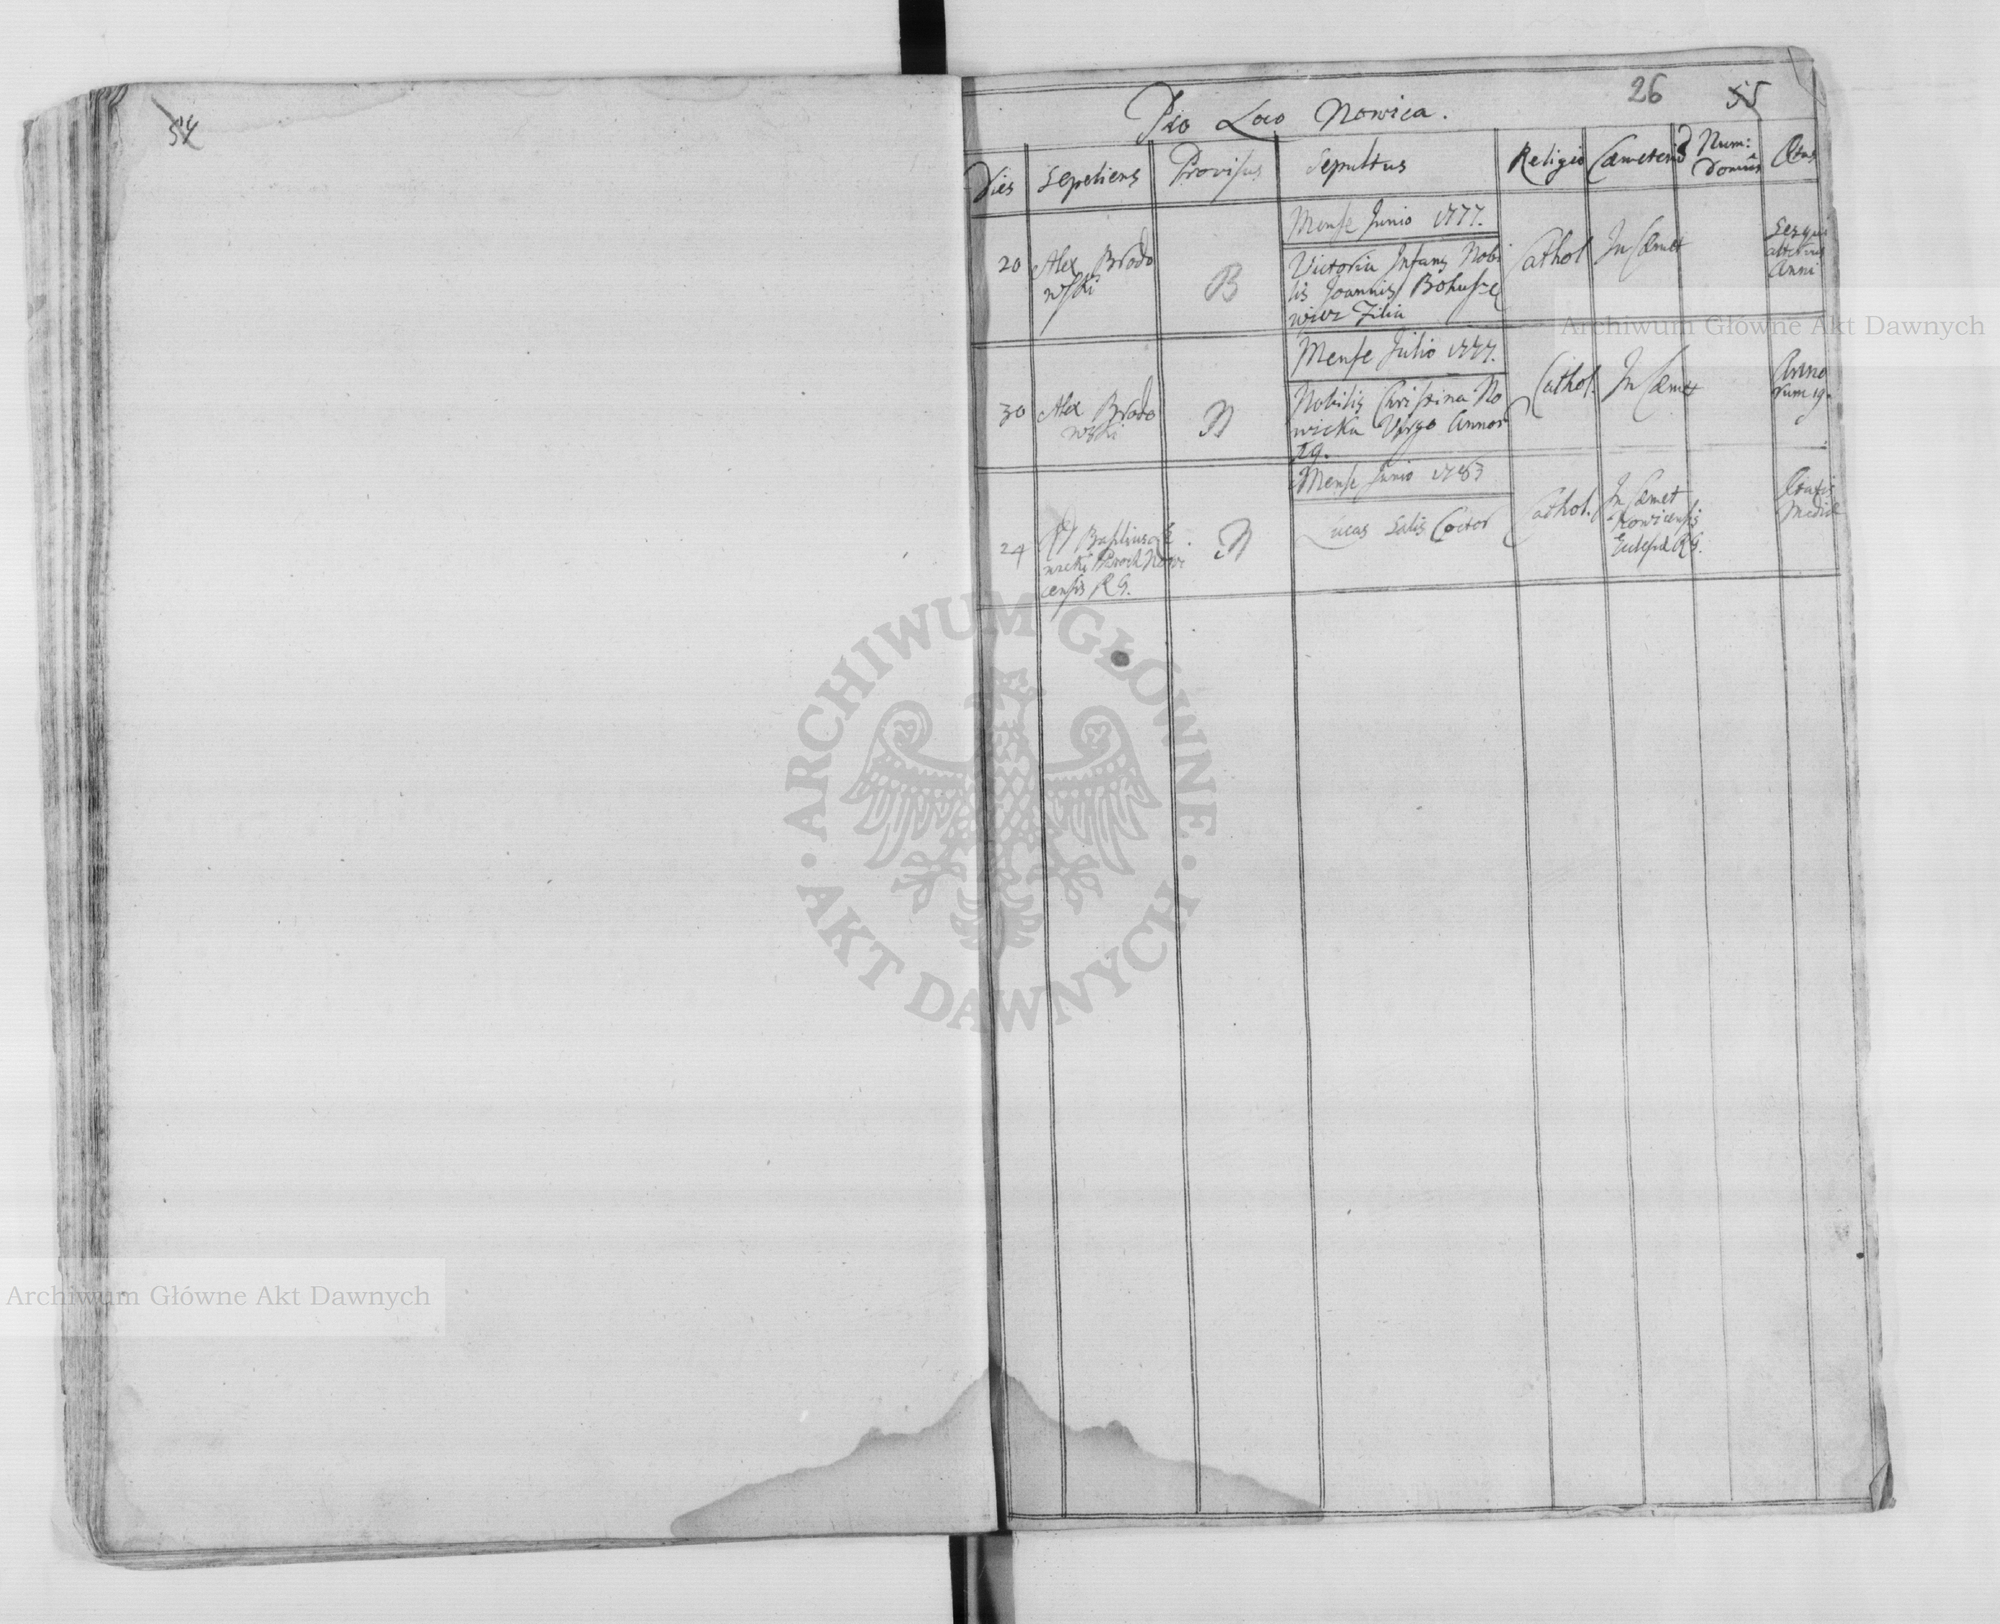 54
26 55
Pro Loco Nowica.
Dies Sepeliens Provisus Sepultus Religio Cæmeteriũ Num: Domûs Ætas
Mense Junio 1777.
20 Alex Brodo
wski
B
Victoria Infans Nobi
lis Joannis Bohusse
wicz Filia
Cathol In Cæmet
Sesqui
alterius
Anni
Mense Julio 1777.
30 Alex Brodo
wski
N
Nobilis Christina No
wicka Virgo Annor
19.
Cathol. In Cæmet
Anno
rum 19.
Mense Junio 1783
24
Basilius
Paroch Nowi
censis RG.
N
Lucas Salis Coctor
Cathol.
In Cæmet
Nowicensis
Eclesiæ RG.
Ætatis
Mediæ
Archiwum Główne Akt Dawnych
Archiwum Główne Akt Dawnych
ARCHIWUM GŁÓWNE AKT DAWNYCH